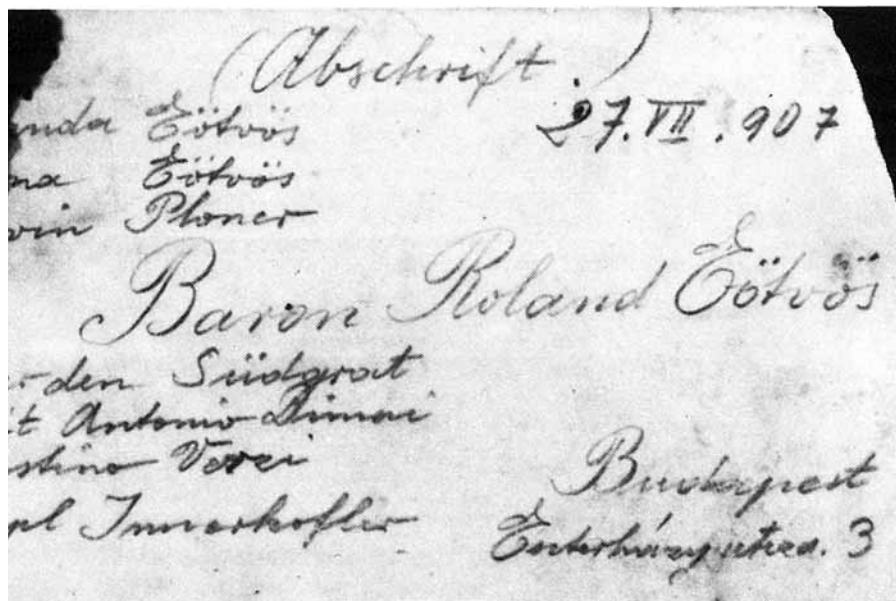 (Abschrift.)
27.VII.907
anda Eötvös
na Eötvös
win Ploner
Baron Roland Eötvös
r den Südgrat
it Antonio Dimai
stino Verzi
pl Innerkofler
Budapest
Eszterházy utcza. 3